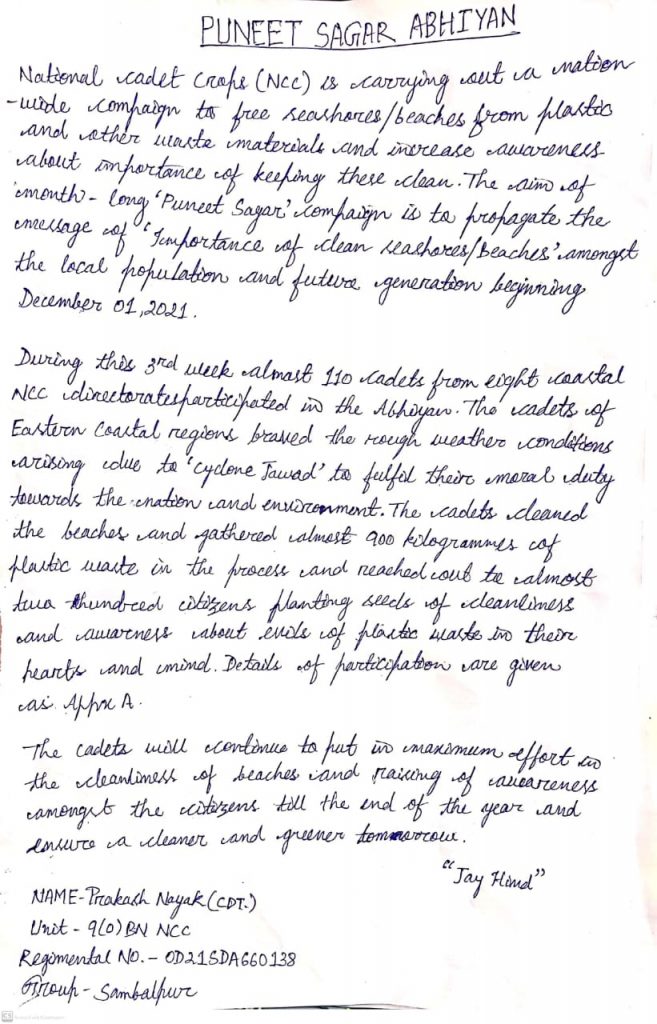 PUNEET SAGAR ABHIYAN
National cadet Crops (NCC) is carrying out a nation
-wide compaign to free seashores/beaches from plastic
and other waste materials and increase awareness
about importance of keeping these clean. The aim of
month - long 'Puneet Sagar' compaign is to propagate the
message of 'Importance of clean seashores/Beaches' amongst
the local population and future generation beginning
December 01, 2021.
During this 3rd week almost 110 cadets from eight coastal
NCC directorates participated in the Abhiyan. The cadets of
Eastern Coastal regions braved the rough weather conditions
arising due to 'Cyclone Jawad' to fulfil their moral duty
towards the nation and environment. The cadets cleaned
the beaches and gathered almost 900 kilogrammes of
plastic waste in the process and reached out to almost
two thundred citizens planting seeds of cleanliness
and awarness about evils of plastic waste in their
hearts and mind. Details of participation are given
as Appx A.
The cadets will continue to put in maximum effort in
the cleanliness of beaches and raising of awareness
amongst the citizens till the end of the year and
ensure a cleaner and greener tommorrow.
"Jay Hind"
NAME - Prakash Nayak (CDT.)
Unit - 9(O) BN NCC
Regimental NO. - OD21SDA660138
Group - Sambalpur
CS